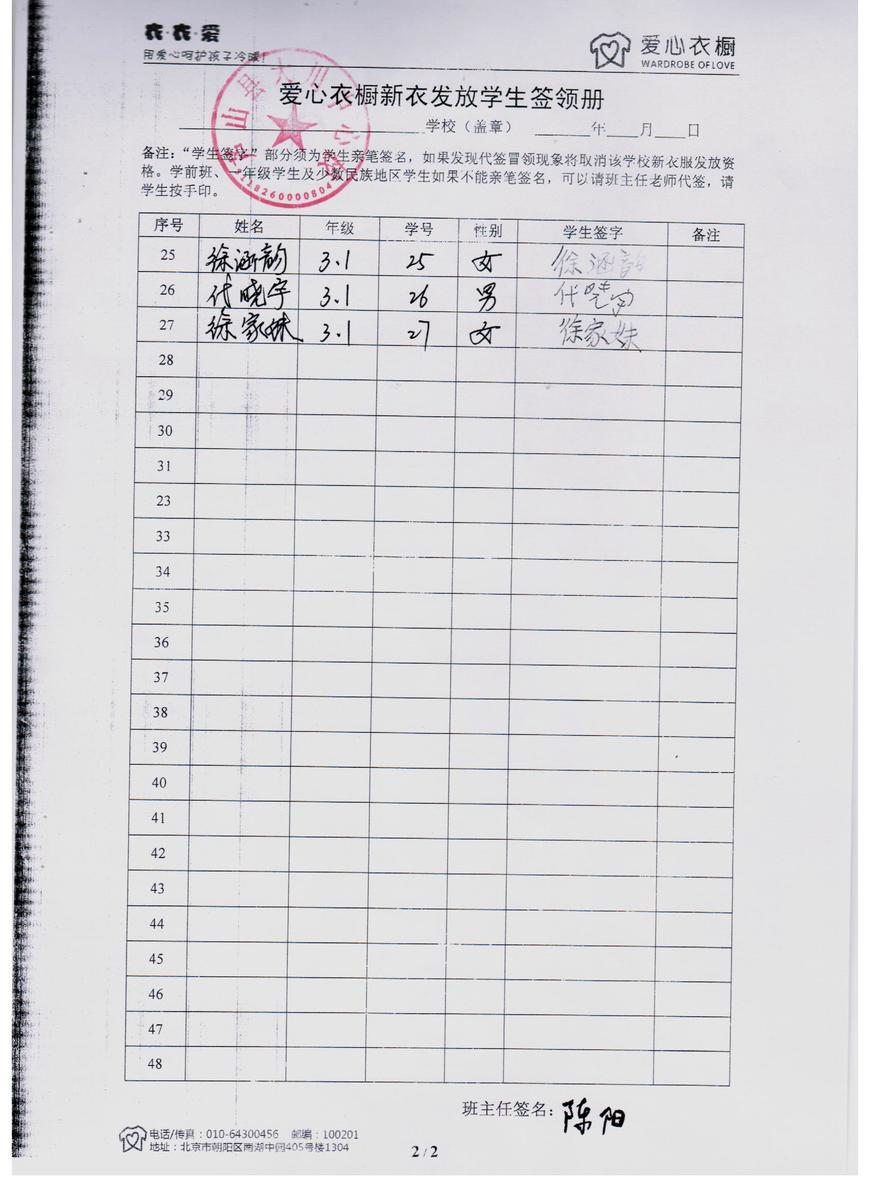 衣·衣·爱
用爱心呵护孩子冷暖!
爱心衣橱
WARDROBE OF LOVE
爱心衣橱新衣发放学生签领册
学校（盖章） 年 月 日
备注：“学生签字”部分须为学生亲笔签名，如果发现代签冒领现象将取消该学校新衣服发放资
格。学前班、一年级学生及少数民族地区学生如果不能亲笔签名，可以请班主任老师代签，请
学生按手印。
序号 姓名 年级 学号 性别 学生签字 备注
25 徐涵韵 3.1 25 女 徐涵韵
26 代晓宇 3.1 26 男 代
27 徐家妹 3.1 27 女 徐家妹
28
29
30
31
23
33
34
35
36
37
38
39
40
41
42
43
44
45
46
47
48
班主任签名：陈阳
电话/传真：010-64300456 邮编：100201
地址：北京市朝阳区南湖中园405号楼1304
2 / 2